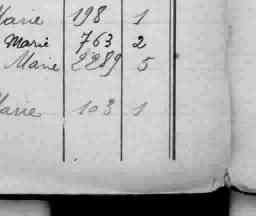 Marie 198 1
Marie 763 2
Marie 2289 5
Marie 103 1